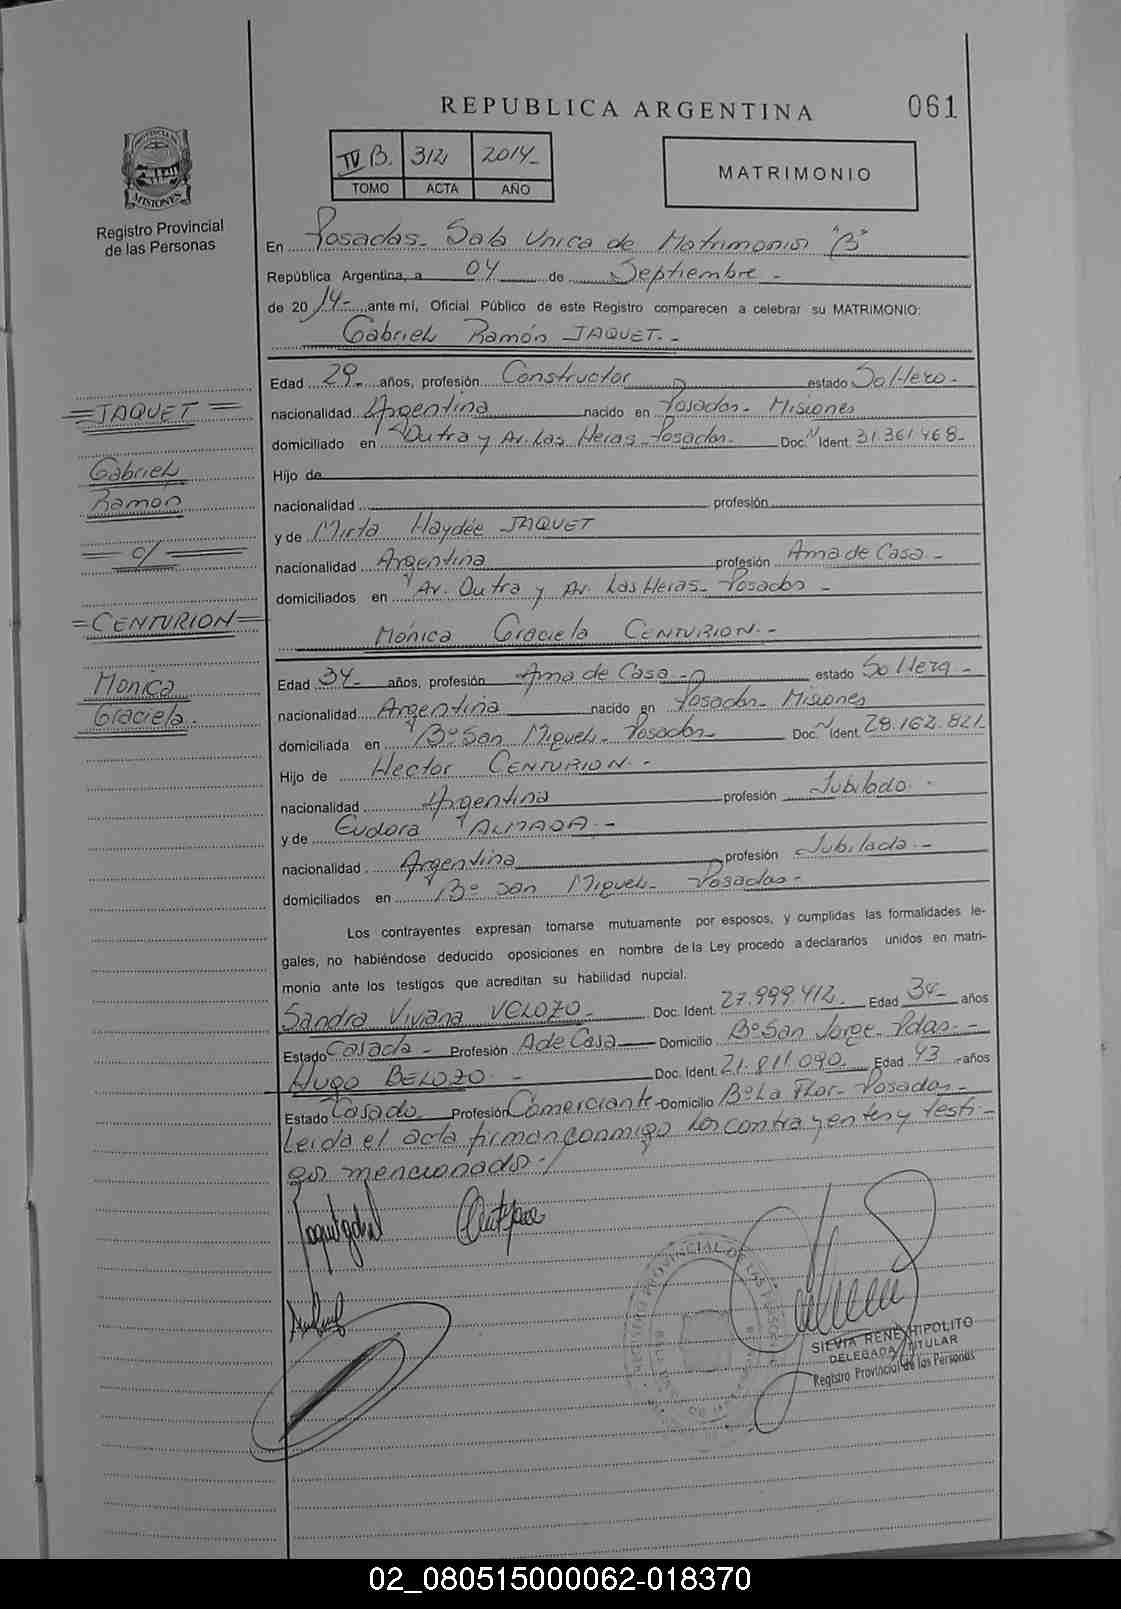 REPUBLICA ARGENTINA
061
IV B. 312 2014-
TOMO ACTA AÑO
MATRIMONIO
PROVINCIA DE
MISIONES
Registro Provincial
de las Personas
En Posadas- Sala Unica de Matrimonio "B"
República Argentina, a 04 de Septiembre -
de 20 14- ante mí, Oficial Público de este Registro comparecen a celebrar su MATRIMONIO:
Gabriel Ramón JAQUET.-
Edad 29.- años, profesión Constructor estado Soltero-
nacionalidad Argentina nacido en Posadas- Misiones
domiciliado en Dutra y Av. Las Heras- Posadas- Doc. Ident. 31.361.468-
Hijo de
nacionalidad profesión
y de Mirta Haydée JAQUET
nacionalidad Argentina profesión Ama de Casa-
domiciliados en Av. Dutra y Av. Las Heras- Posadas -
Mónica Graciela CENTURION.-
Edad 34- años, profesión Ama de Casa- estado Soltera-
nacionalidad Argentina nacido en Posadas- Misiones
domiciliada en Bº San Miguel- Posadas- Doc. Ident. 28.162.821-
Hijo de Hector CENTURION.-
nacionalidad Argentina profesión Jubilado.-
y de Eudora ALMADA.-
nacionalidad Argentina profesión Jubilada.-
domiciliados en Bº San Miguel- Posadas-
=JAQUET=
Gabriel
Ramon
= c/ =
=CENTURION=
Monica
Graciela.
Los contrayentes expresan tomarse mutuamente por esposos, y cumplidas las formalidades le-
gales, no habiéndose deducido oposiciones en nombre de la Ley procedo a declararlos unidos en matri-
monio ante los testigos que acreditan su habilidad nupcial.
Sandra Viviana VELOZO- Doc. Ident. 27.999.412- Edad 34- años
Estado Casada- Profesión A de Casa Domicilio Bº San Jorge- Pdas.-
Hugo BELOZO.- Doc. Ident. 21.811.090- Edad 43- años
Estado Casado Profesión Comerciante- Domicilio Bº La Flor- Posadas-
Leida el acta firman conmigo los contrayentes y testi-
gos mencionados-/
REGISTRO PROVINCIAL DE LAS PERSONAS
SILVIA RENE HIPOLITO
DELEGADA TITULAR
Registro Provincial de las Personas
02_080515000062-018370